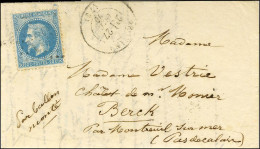 Madame
Madame Vestrie
Châlet de Mr Monier
Berck
Par Montreuil sur mer
(Pas de calais)
Par ballon
monté